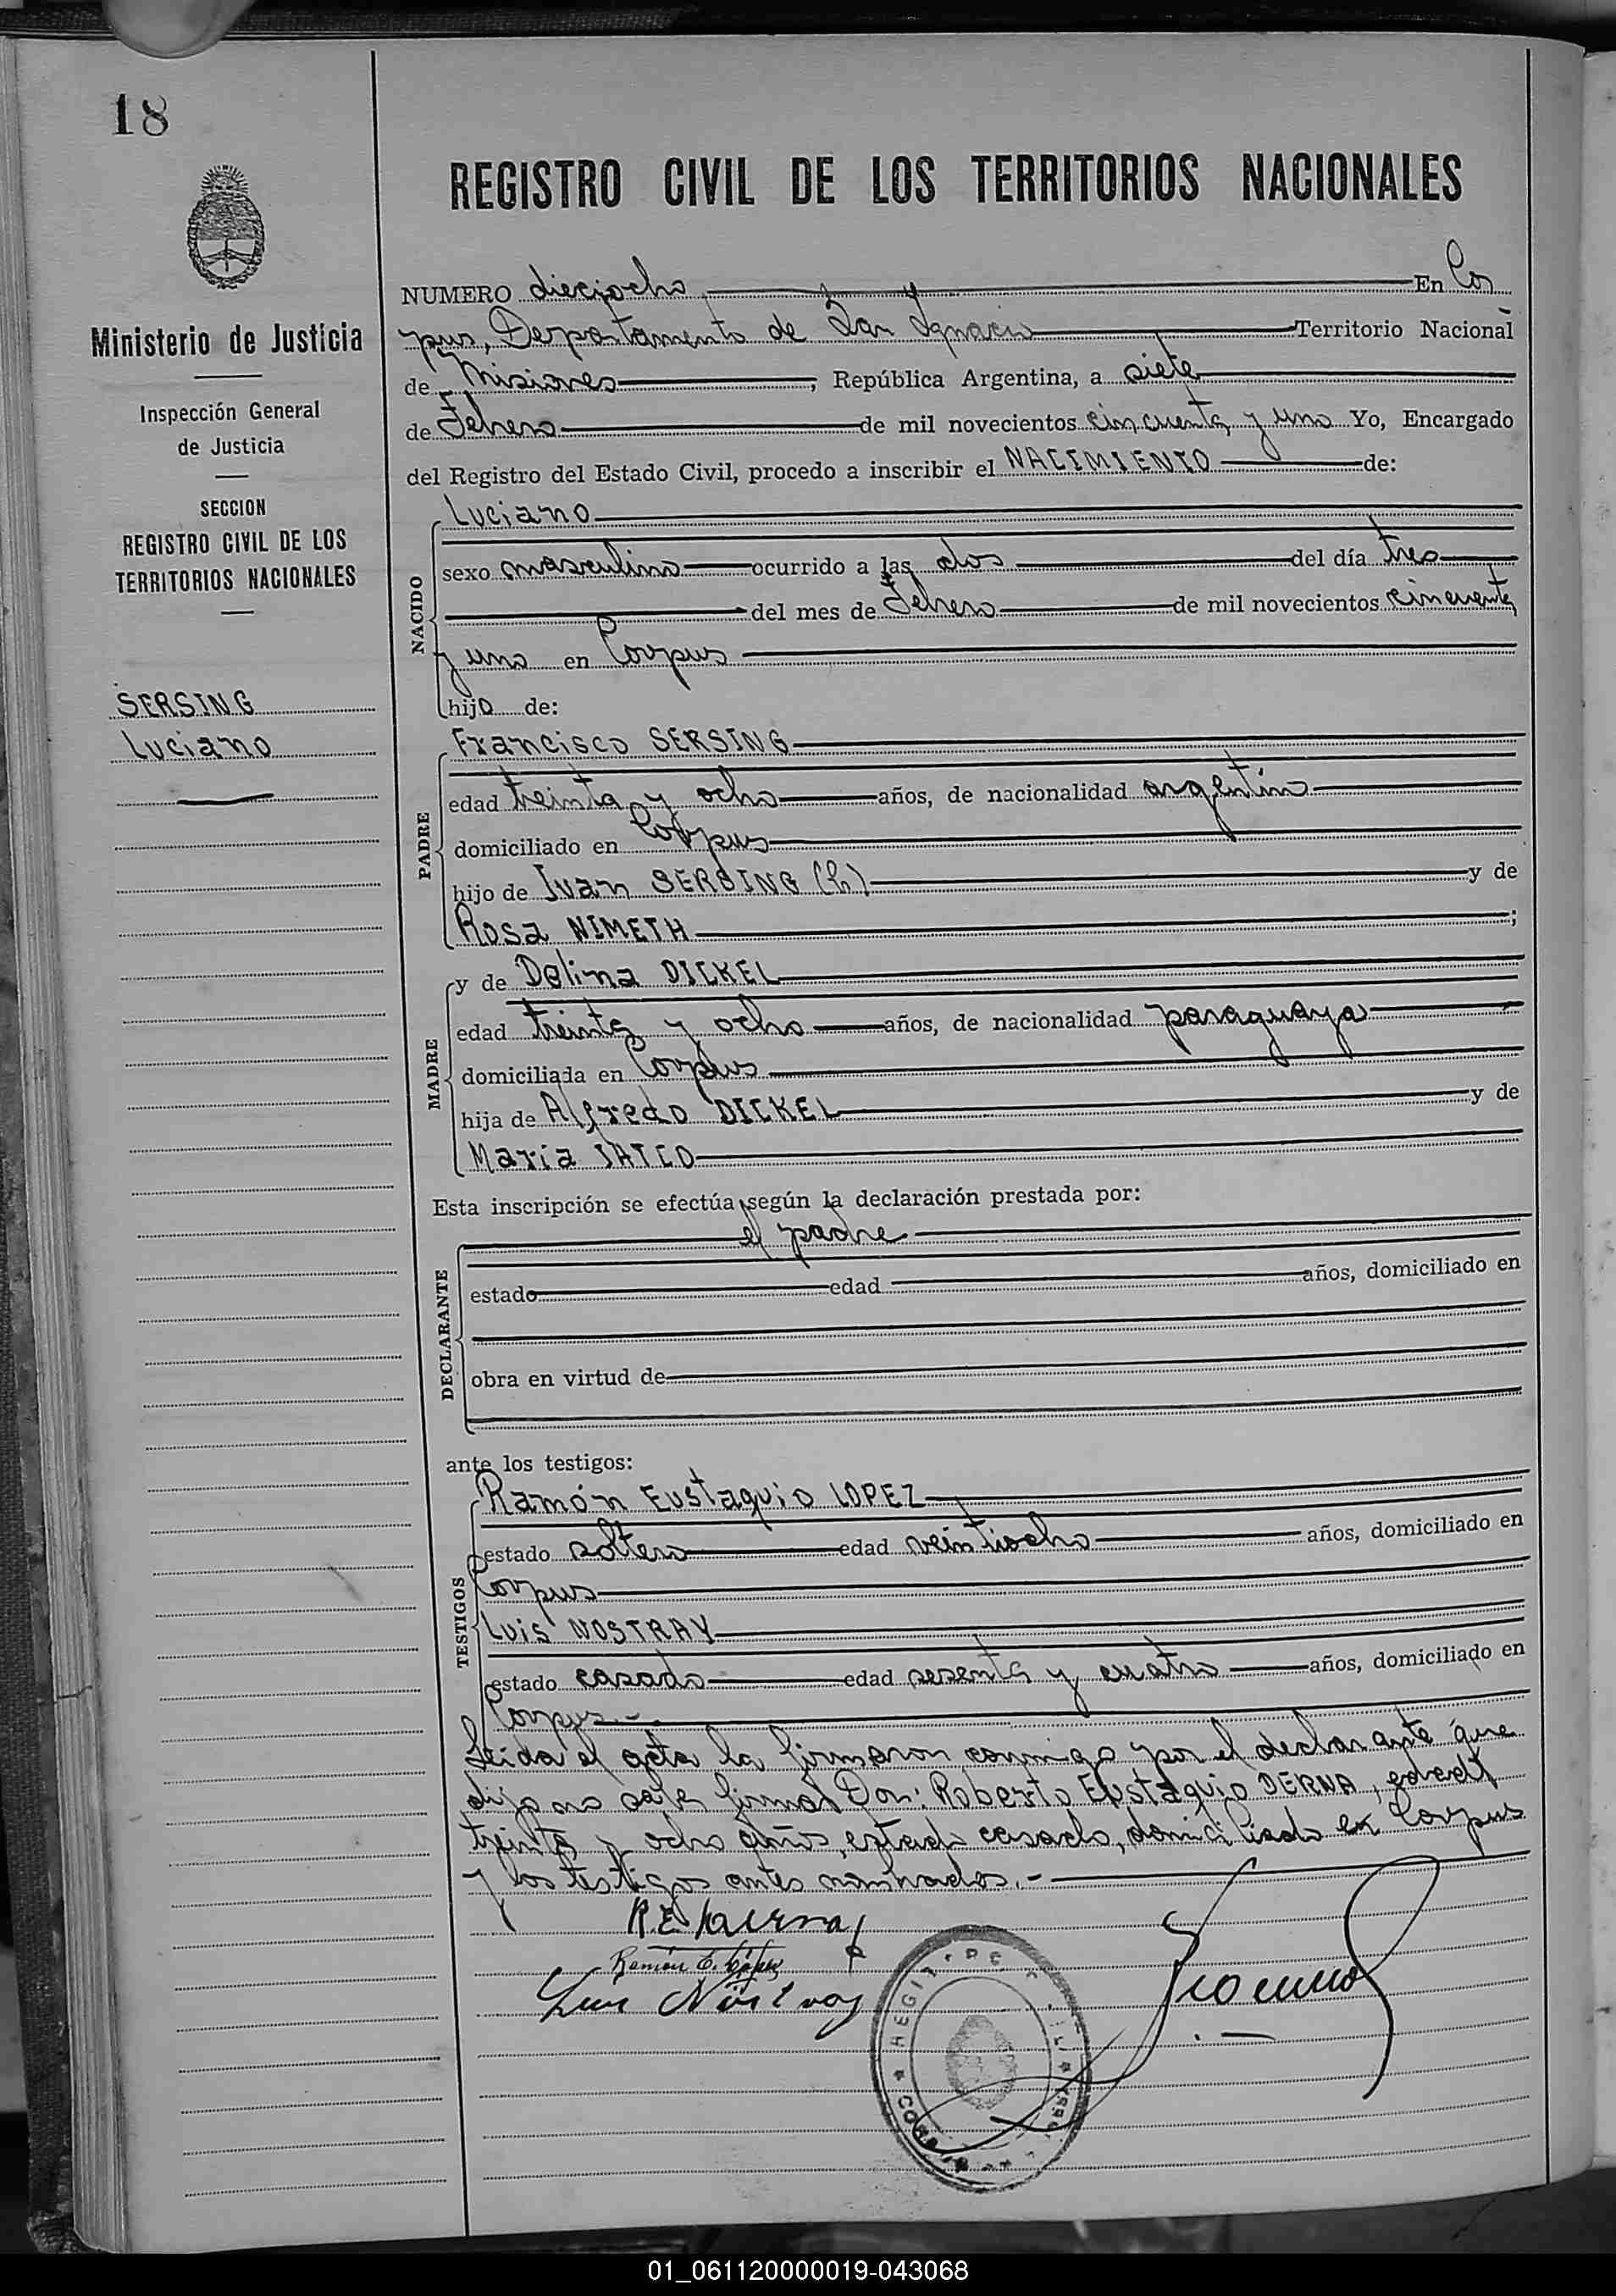 18
REGISTRO CIVIL DE LOS TERRITORIOS NACIONALES
Ministerio de Justicia
Inspección General
de Justicia
SECCION
REGISTRO CIVIL DE LOS
TERRITORIOS NACIONALES
SERSING
Luciano
NUMERO dieciocho En Cor
pus, Departamento de San Ignacio Territorio Nacional
de Misiones, República Argentina, a siete
de Febrero de mil novecientos cincuenta y uno Yo, Encargado
del Registro del Estado Civil, procedo a inscribir el NACIMIENTO de:
NACIDO
Luciano
sexo masculino ocurrido a las dos del día tres
del mes de Febrero de mil novecientos cincuenta
y uno en Corpus
hijo de:
PADRE
Francisco SERSING
edad treinta y ocho años, de nacionalidad argentin
domiciliado en Corpus
hijo de Juan SERSING (h) y de
Rosa NIMETH;
MADRE
y de Delina DICKEL
edad treinta y ocho años, de nacionalidad paraguaya
domiciliada en Corpus
hija de Alfredo DICKEL y de
María
Esta inscripción se efectúa según la declaración prestada por:
DECLARANTE
el padre
estado edad años, domiciliado en
obra en virtud de
ante los testigos:
TESTIGOS
Ramón Eustaquio LOPEZ
estado soltero edad veintiocho años, domiciliado en
Corpus
Luis NOSTRAY
estado casado edad sesenta y cuatro años, domiciliado en
Corpus.-
Leida el acta la firmaron conmigo por el declarante que
dijo no saber firmar Don: Roberto Eustaquio DERNA, edad
treinta y ocho años, estado casado, domiciliado en Corpus
y los testigos antes nombrados.-
R.E.
Ramón E. López
Luis